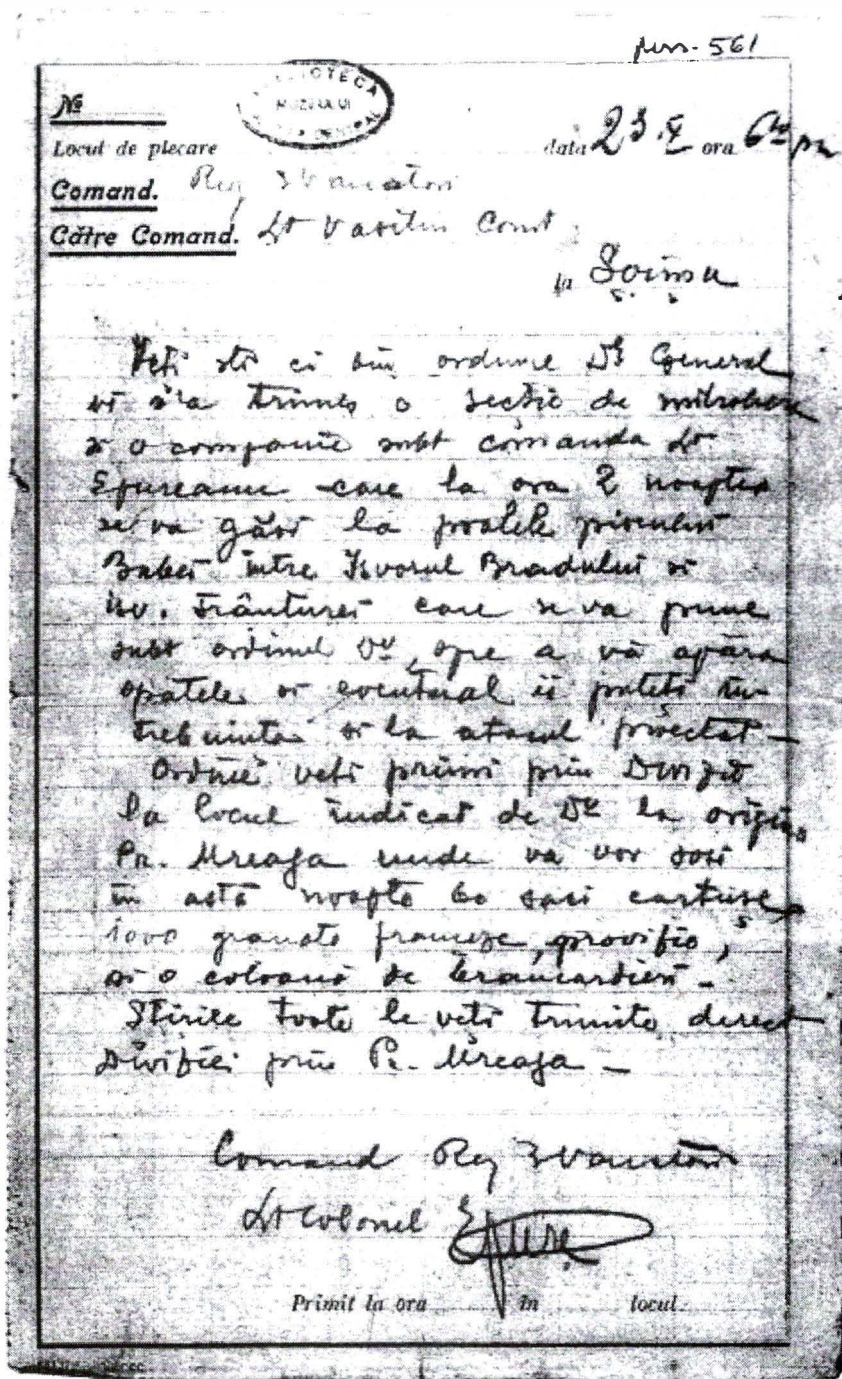 561
BIBLIOTECA
MUZEULUI
CENTRAL
№
Locul de plecare data 23. X ora 6 pm
Comand. Reg 3 Vanatori
Către Comand. Lt Vasiliu Const
la Șoimu
Veti sti ca din ordine Dl General
vi s'a trimes o sectie de mitraliere
si o companie subt comanda Lt
Epureanu care la ora 2 noaptea
se va găsi la poalele piscului
Babei între Isvorul Bradului si
Isv. Frânturei care se va pune
subt ordinul Dv, spre a vă apăra
spatele si eventual ii puteti in-
trebuinta si la atacul proectat –
Ordine veti primi prin Divizie
la locul indicat de Dv la origina
Pr. Ureaga unde va vor sosi
in astă noapte 60 saci cartuse,
1000 granate franceze, provizie,
si o coloană de brancardieri –
Stirile toate le veti trimite direct
Diviziei prin Pr. Ureaga –
Comand Reg 3 Vanatori
Lt Colonel Epure
Primit la ora în locul